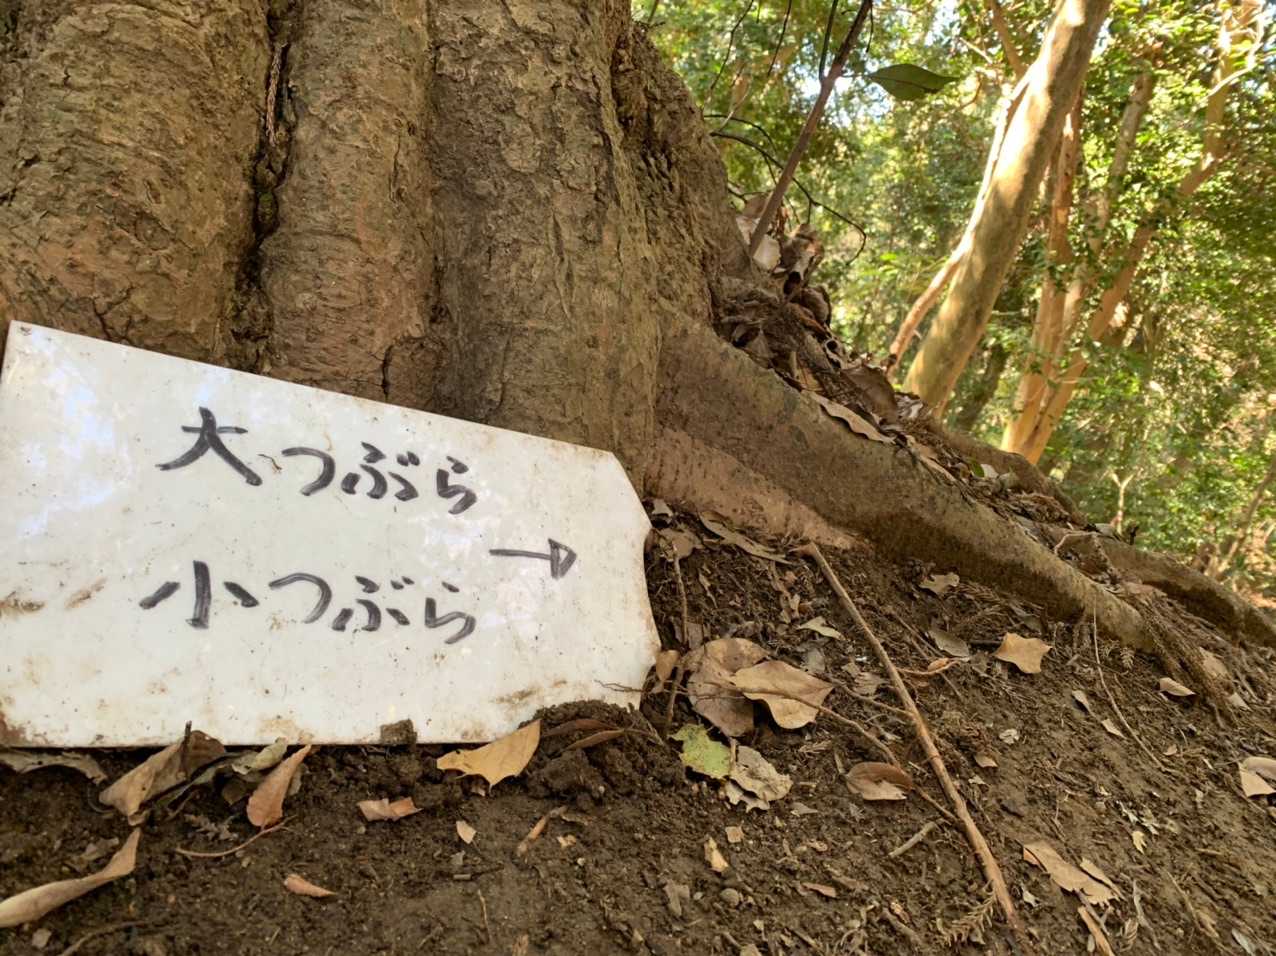 大つぶら
→
小つぶら